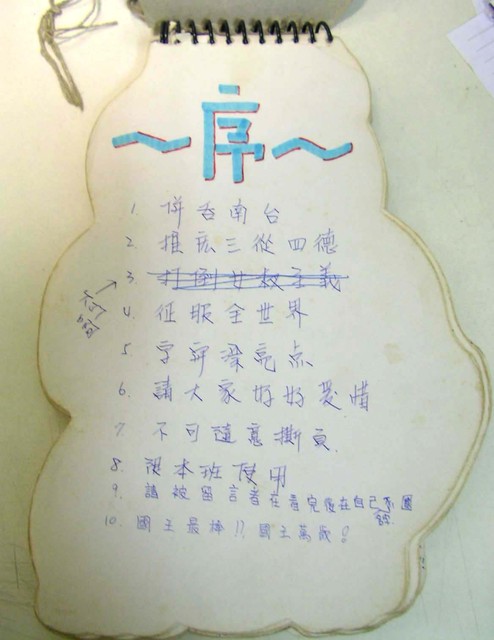 ~序~
1. 併吞南台
2. 推広三從四德
3. 打倒女权主義
4. 征服全世界
5. 字字漂亮点
6. 請大家好好愛惜
7. 不可隨意撕頁.
8. 限本班使用
9. 請被留言者在看完後在自己
10. 國王最棒!! 國王萬歲!